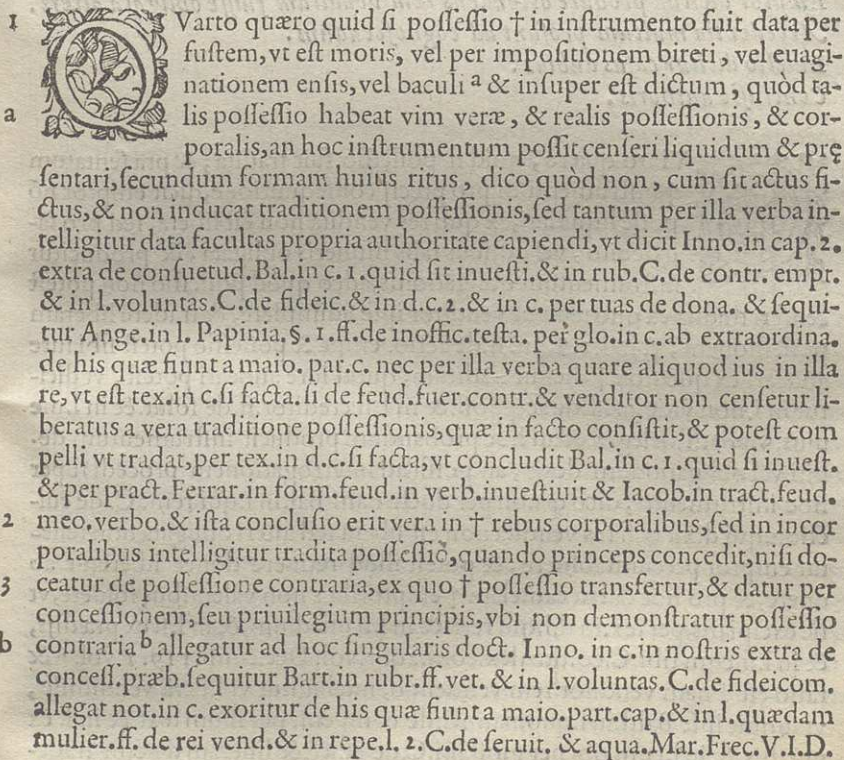 1 QVarto quæro quid ſi poſſeſſio † in inſtrumento fuit data per
fuſtem, vt eſt moris, vel per impoſitionem bireti, vel euagi-
nationem enſis, vel baculi ᵃ & inſuper eſt dictum, quòd ta-
a lis poſſeſſio habeat vim veræ, & realis poſſeſſionis, & cor-
poralis, an hoc inſtrumentum poſſit cenſeri liquidum & prę
ſentari, ſecundum formam huius ritus, dico quòd non, cum ſit actus fi-
ctus, & non inducat traditionem poſſeſſionis, ſed tantum per illa verba in-
telligitur data facultas propria authoritate capiendi, vt dicit Inno. in cap. 2.
extra de conſuetud. Bal. in c. 1. quid ſit inueſti. & in rub. C. de contr. empt.
& in l. voluntas. C. de fideic. & in d. c. 2. & in c. per tuas de dona. & ſequi-
tur Ange. in l. Papinia. §. 1. ff. de inoffic. teſta. per glo. in c. ab extraordina.
de his quæ fiunt a maio. par. c. nec per illa verba quare aliquod ius in illa
re, vt eſt tex. in c. ſi facta. ſi de feud. fuer. contr. & venditor non cenſetur li-
beratus a vera traditione poſſeſſionis, quæ in facto conſiſtit, & poteſt com
pelli vt tradat, per tex. in d. c. ſi facta, vt concludit Bal. in c. 1. quid ſi inueſt.
& per pract. Ferrar. in form. feud. in verb. inueſtiuit & Iacob. in tract. feud.
2 meo. verbo. & iſta concluſio erit vera in † rebus corporalibus, ſed in incor
poralibus intelligitur tradita poſſeſſio, quando princeps concedit, niſi do-
3 ceatur de poſſeſſione contraria, ex quo † poſſeſſio transfertur, & datur per
conceſſionem, ſeu priuilegium principis, vbi non demonſtratur poſſeſſio
b contraria ᵇ allegatur ad hoc ſingularis doct. Inno. in c. in noſtris extra de
conceſſ. præb. ſequitur Bart. in rubr. ff. vet. & in l. voluntas. C. de fideicom.
allegat not. in c. exoritur de his quæ fiunt a maio. part. cap. & in l. quædam
mulier. ff. de rei vend. & in repe. l. 2. C. de ſeruit. & aqua. Mar. Frec. V. I. D.